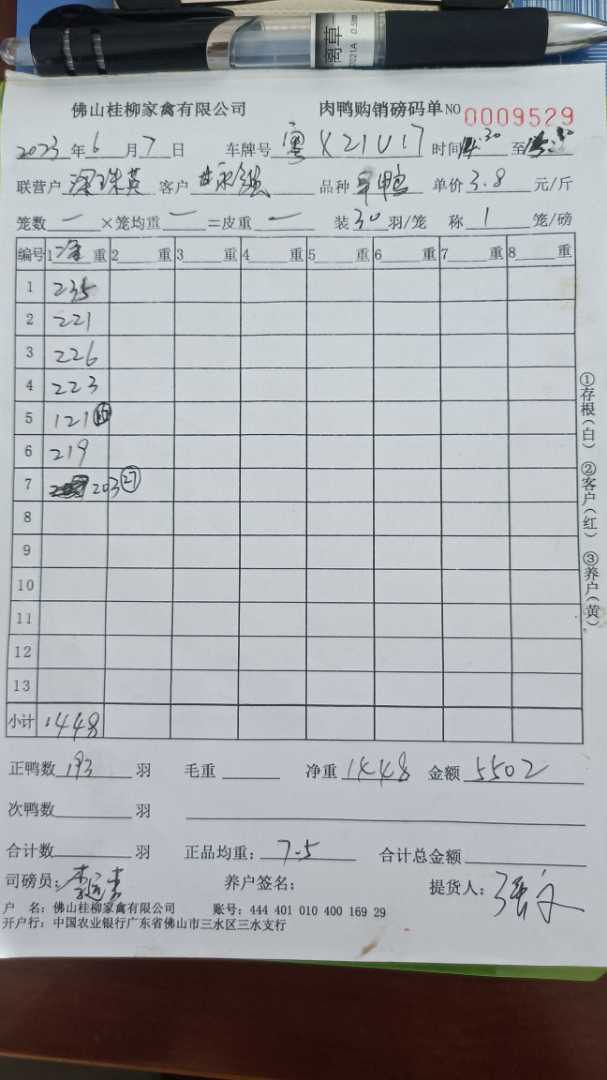 离草 2021A 0.5mm
佛山桂柳家禽有限公司 肉鸭购销磅码单 NO 0009529
2023年6月7日 车牌号 粤X21U17 时间 14:30 至
联营户 珠英 客户 品种 单价 3.8 元/斤
笼数 一 ×笼均重 一 =皮重 一 装30羽/笼 称 1 笼/磅
编号 1 净 重 2 重 3 重 4 重 5 重 6 重 7 重 8 重
1 235
2 221
3 226
4 223
5 121
6 219
7 203 27
8
9
10
11
12
13
小计 1448
正鸭数 193 羽 毛重 净重 1448 金额 5502
次鸭数 羽
合计数 羽 正品均重: 7.5 合计总金额
司磅员: 养户签名: 提货人:
户 名: 佛山桂柳家禽有限公司 账号: 444 401 010 400 169 29
开户行: 中国农业银行广东省佛山市三水区三水支行
①存根(白) ②客户(红) ③养户(黄)